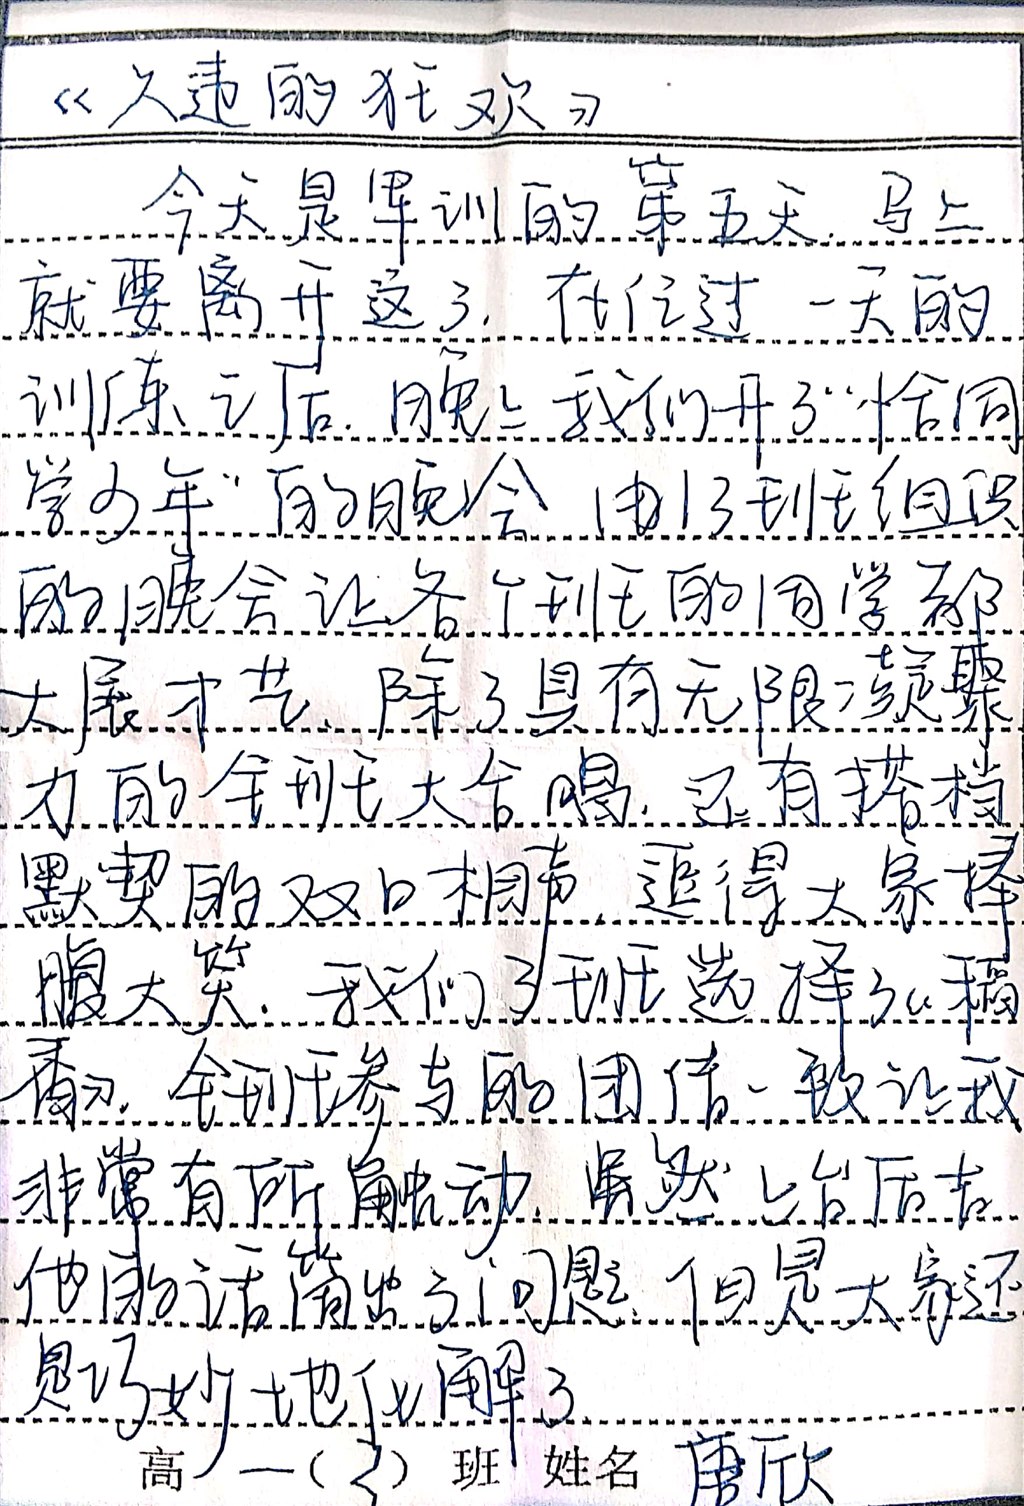 《久违的狂欢》
今天是军训的第五天.马上
就要离开这了.在经过一天的
训练之后.晚上我们开了“恰同
学少年”的晚会 由13班组织
的晚会让各个班的同学都
大展才艺.除了具有无限凝聚
力的全班大合唱.还有搭档
默契的双口相声.逗得大家捧
腹大笑.我们3班选择了《稻
香》.全班参与的团结一致让我
非常有所触动.虽然上台后吉
他的话筒出了问题.但是大家还
是巧妙地化解了
高一(3)班 姓名 唐欣